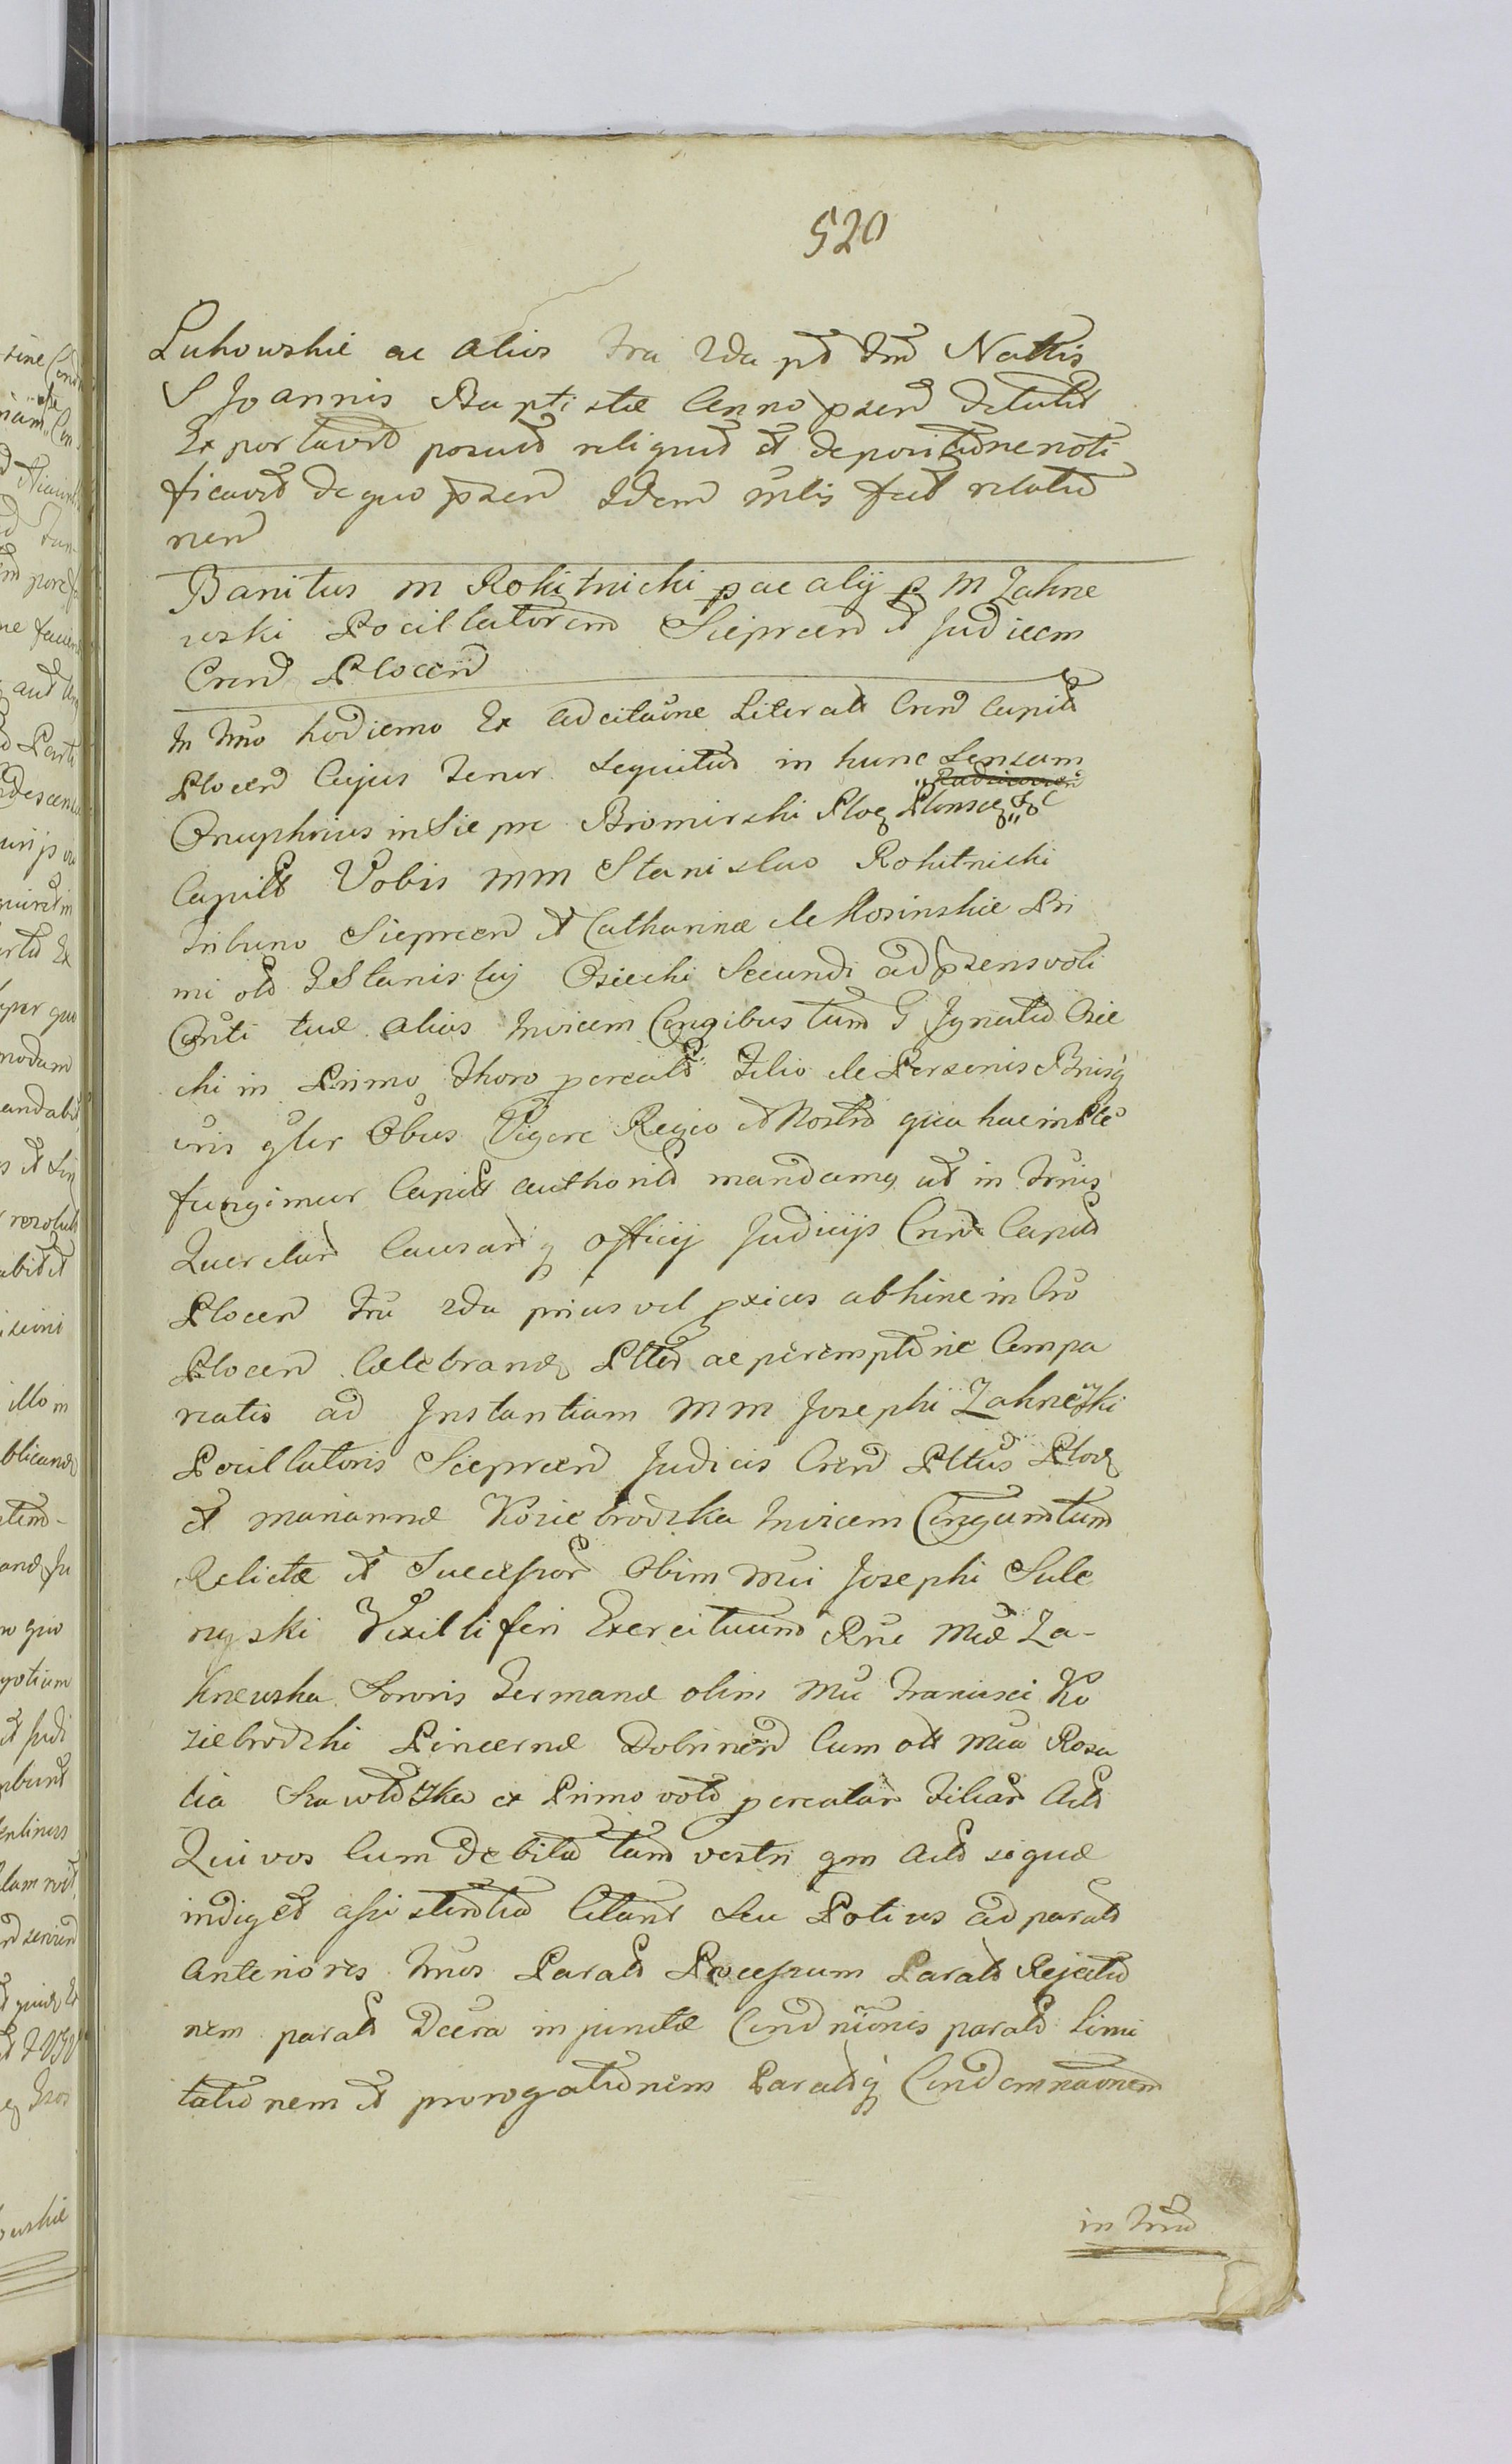 520
Lukowskie ac alios fra 2da pt fm Nattis
S Joannis Baptistæ Anno psen detulit
Exportavit posuit reliquit et depositione noti
ficavit de quo psen Idem mlis fecit relatio
nen
Banitus M Rokitnicki p ac alij p M Zakrze
wski Pocillatorem Sieprcen et Judicem
Cren Plocen
In Tmo hodierno Ex adcitaone Literali Cren Capitt
Plocen Cujus Tenor sequitur in hunc Sensum
Onuphrius in Sie pre Bromirski Ploc Plonsc
Capitt Vobis MM Stanislao Rokitnicki
Tribuno Sieprcen et Catharinæ de Kosinskie Pri
mi ol G Stanislaj Osiecki Secundi ad psens voti
Conti tuæ alias Invicem Congibus tum G Ignatio Osie
cki in Primo Thoro procreat Filio de Personis Bnisq
vris gler Obus Vigore Regio et Nostra qua hac in Ple
fungimur Capitt authorit mandamq ut in Tmis
Querelar Causarq officij Judicijs Cren Capitt
Plocen fra 2da prius vel pxius abhinc in Cro
Plocen Celebrand Pltter ac peremptorie Compa
reatis ad Instantiam MM Josephi Zakrzewski
Pocillatoris Sieprcen Judicis Cren Pltus Ploc
et Mariannæ Koziebrodzka Invicem Congum tum
Relictæ et Successor Obim Mci Josephi Sule
rzyski Vexilliferi Exercituum Rne Mcæ Za-
krzewska Sororis Germanæ olim Mci Francisci Ko
ziebrodzki Pincernæ Dobrinen Cum olt Mca Rosa
lia ex Primo voto procreatar Filiar Act
Qui vos Cum debita tum vestri qm Act siquæ
indiget assistentia Citant Seu Potius ad parat
anterioris Tmos Parat Processum Parat Rejectio
nem parat Dcera injunctæ Condnionis parat Limi
tationem et prorogationem Paratq Condemnaonem
in Tmo